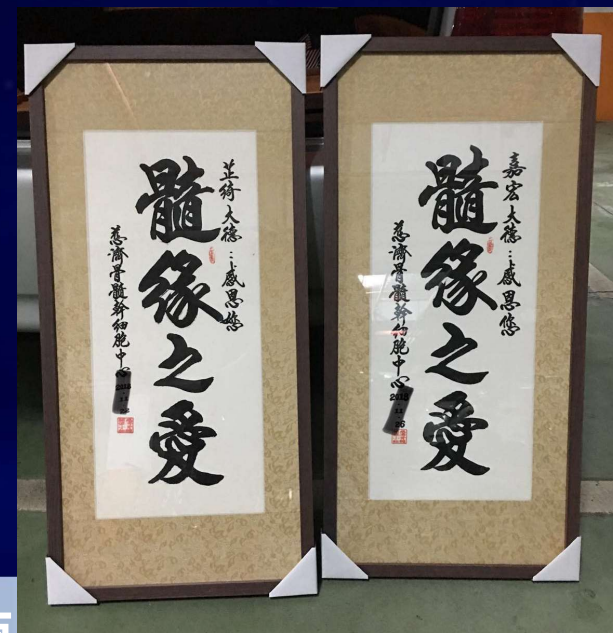 芷綺大德：感恩您
髓緣之愛
慈濟骨髓幹細胞中心
嘉宏大德：感恩您
髓緣之愛
慈濟骨髓幹細胞中心
2018
11
26